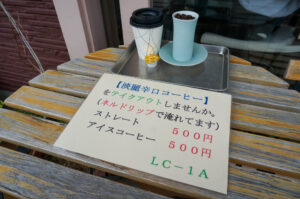 【挾麗辛口コーヒー】
をテイクアウトしませんか。
(ネルドリップで淹れてます)
ストレート 500円
アイスコーヒー 500円
LC-1A